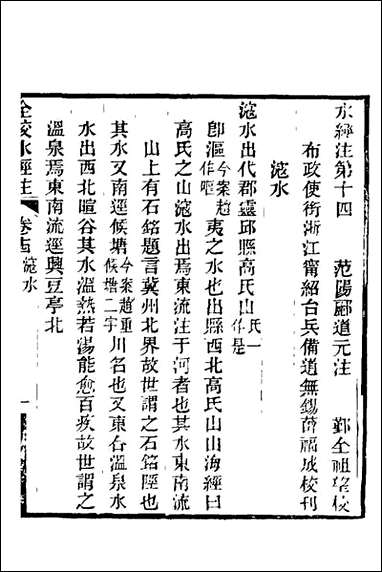 水經注第十四 范陽酈道元注 鄞全祖望校
布政使銜浙江甯紹台兵備道無錫薛福成校刊
滱水
滱水出代郡靈邱縣高氏山氏一作是
卽漚今案趙作嘔夷之水也出縣西北高氏山山海經曰
高氏之山滱水出焉東流注于河者也其水東南流
山上有石銘題言冀州北界故世謂之石銘陘也
其水又南逕候塘今案趙重候塘二字川名也又東合溫泉水
水出西北暄谷其水溫熱若湯能愈百疾故世謂之
溫泉焉東南流逕興豆亭北
全校水經注 卷十四 滱水 一